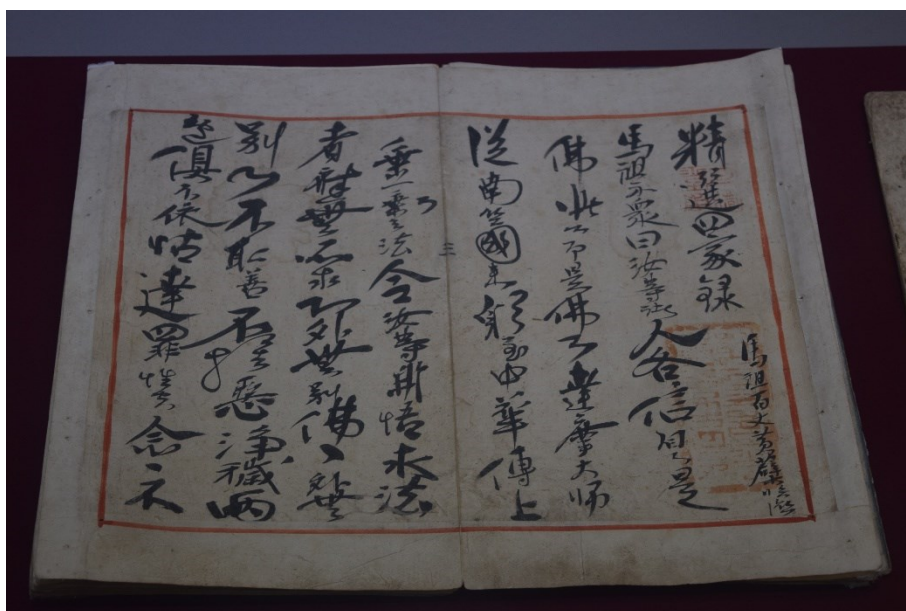 精選四家錄
馬祖百丈黃蘗臨濟
馬祖示衆曰汝等諸人各信自心是
佛此心即是佛心達摩大師
從南竺國來躬至中華傳上
三
乘一之法令汝等開悟求法
者應無所求心外無別佛〻外無
別心不取善不捨惡淨穢兩
邊俱不依怙達罪性空念不